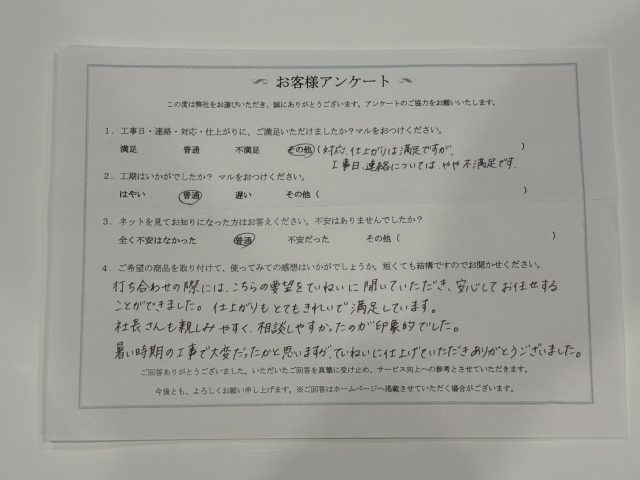 お客様アンケート
この度は弊社をお選びいただき、誠にありがとうございます。アンケートのご協力をお願いいたします。
1．工事日・連絡・対応・仕上がりに、ご満足いただけましたか？マルをおつけください。
満足 普通 不満足 その他(対応、仕上がりは満足ですが、 )
工事日、連絡については、やや不満足です.
2．工期はいかがでしたか？ マルをおつけください。
はやい 普通 遅い その他( )
3．ネットを見てお知りになった方はお答えください。不安はありませんでしたか？
全く不安はなかった 普通 不安だった その他( )
4．ご希望の商品を取り付けて、使ってみての感想はいかがでしょうか。短くても結構ですのでお聞かせください。
打ち合わせの際には、こちらの要望をていねいに聞いていただき、安心してお任せする
ことができました。仕上がりもとてもきれいで満足しています。
社長さんも親しみやすく、相談しやすかったのが印象的でした。
暑い時期の工事で大変だったかと思いますが、ていねいに仕上げていただきありがとうございました。
ご回答ありがとうございました。いただいたご回答を真摯に受け止め、サービス向上への参考とさせていただきます。
今後とも、よろしくお願い申し上げます。※ご回答はホームページへ掲載させていただく場合がございます。